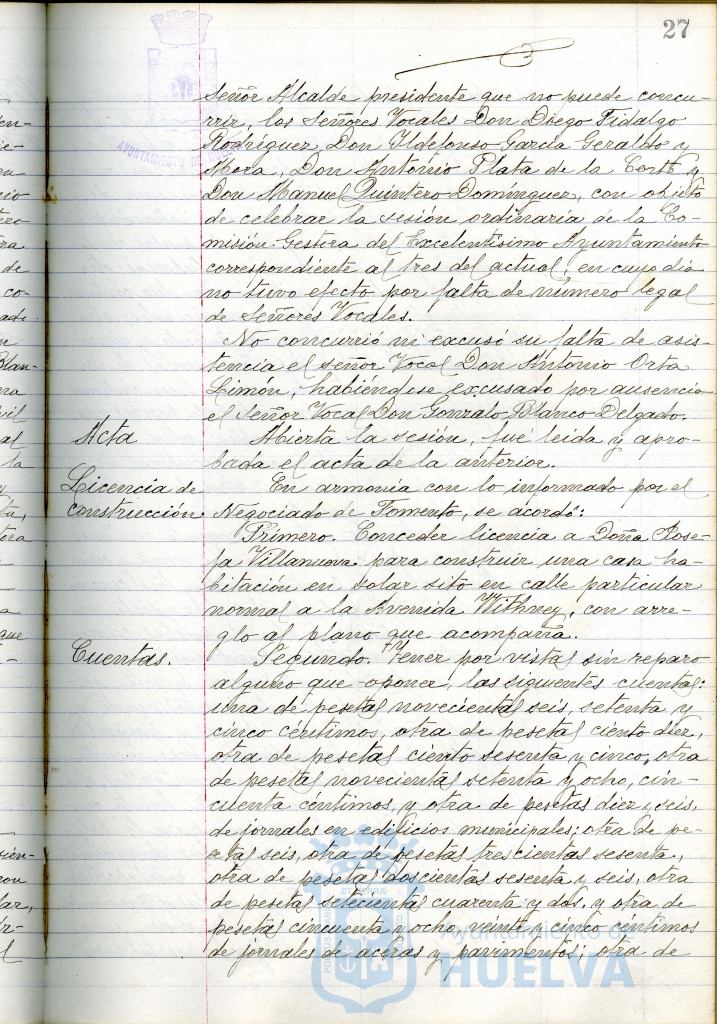 27
Señor Alcalde presidente que no puede concu-
rrir, los Señores Vocales Don Diego Fidalgo
Rodríguez, Don Ildefonso García Geraldo y
Mora, Don Antonio Plata de la Corte y
Don Manuel Quintero Domínguez, con objeto
de celebrar la sesión ordinaria de la Co-
misión Gestora del Excelentísimo Ayuntamiento
correspondiente al tres del actual, en cuyo dia
no tuvo efecto por falta de número legal
de Señores Vocales.
No concurrió ni excusó su falta de asis-
tencia el señor Vocal Don Antonio Orta
Limón, habiéndose excusado por ausencia
el Señor Vocal Don Gonzalo Blanco Delgado.
Acta
Abierta la sesión, fué leida y apro-
bada el acta de la anterior.
Licencia de
construcción.
En armonia con lo informado por el
Negociado de Fomento, se acordó:
Primero. Conceder licencia a Doña Jose-
fa Villanueva para construir una casa ha-
bitación en solar sito en calle particular
normal a la Avenida Withney, con arre-
glo al plano que acompaña.
Cuentas.
Segundo. Tener por vistas sin reparo
alguno que oponer, las siguientes cuentas:
una de pesetas novecientas seis, setenta y
cinco céntimos, otra de pesetas ciento diez,
otra de pesetas ciento sesenta y cinco, otra
de pesetas novecientas setenta y ocho, cin-
cuenta céntimos, y otra de pesetas diez y seis,
de jornales en edificios municipales; otra de pe-
setas seis, otra de pesetas trescientas sesenta,
otra de pesetas doscientas sesenta y seis, otra
de pesetas setecientas cuarenta y dos, y otra de
pesetas cincuenta y ocho, veinte y cinco céntimos
de jornales de aceras y pavimentos; otra de
AYUNTAMIENTO DE
Ayuntamiento de
HUELVA